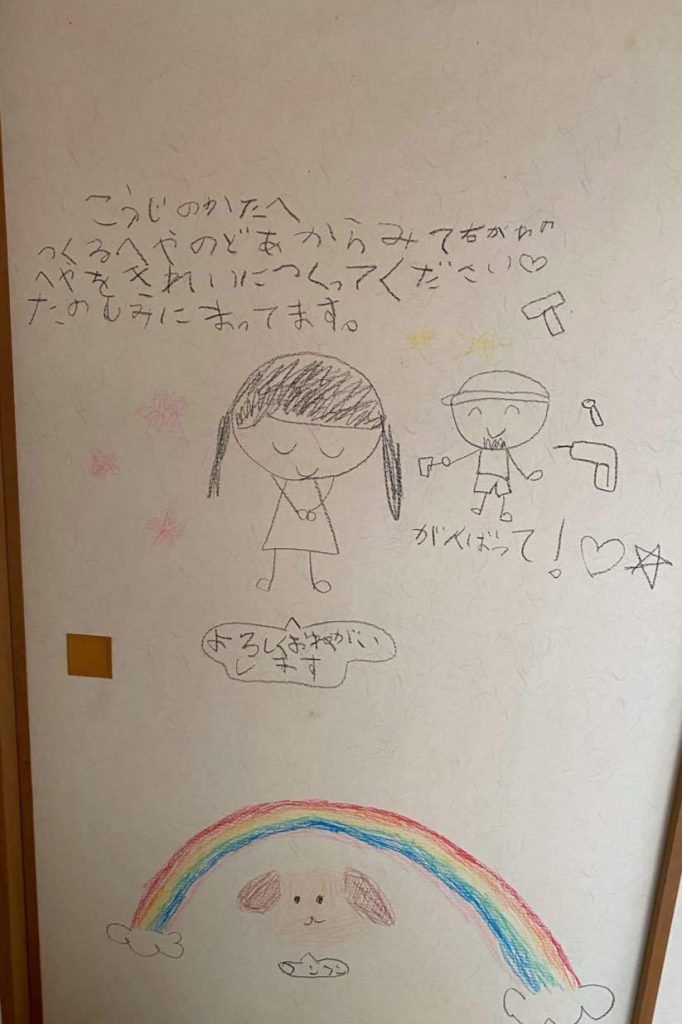 こうじのかたへ
つくるへやのどあからみて右がわの
へやをきれいにつくってください♡
たのしみにまってます。
がんばって!♡☆
よろしくおねがい
します